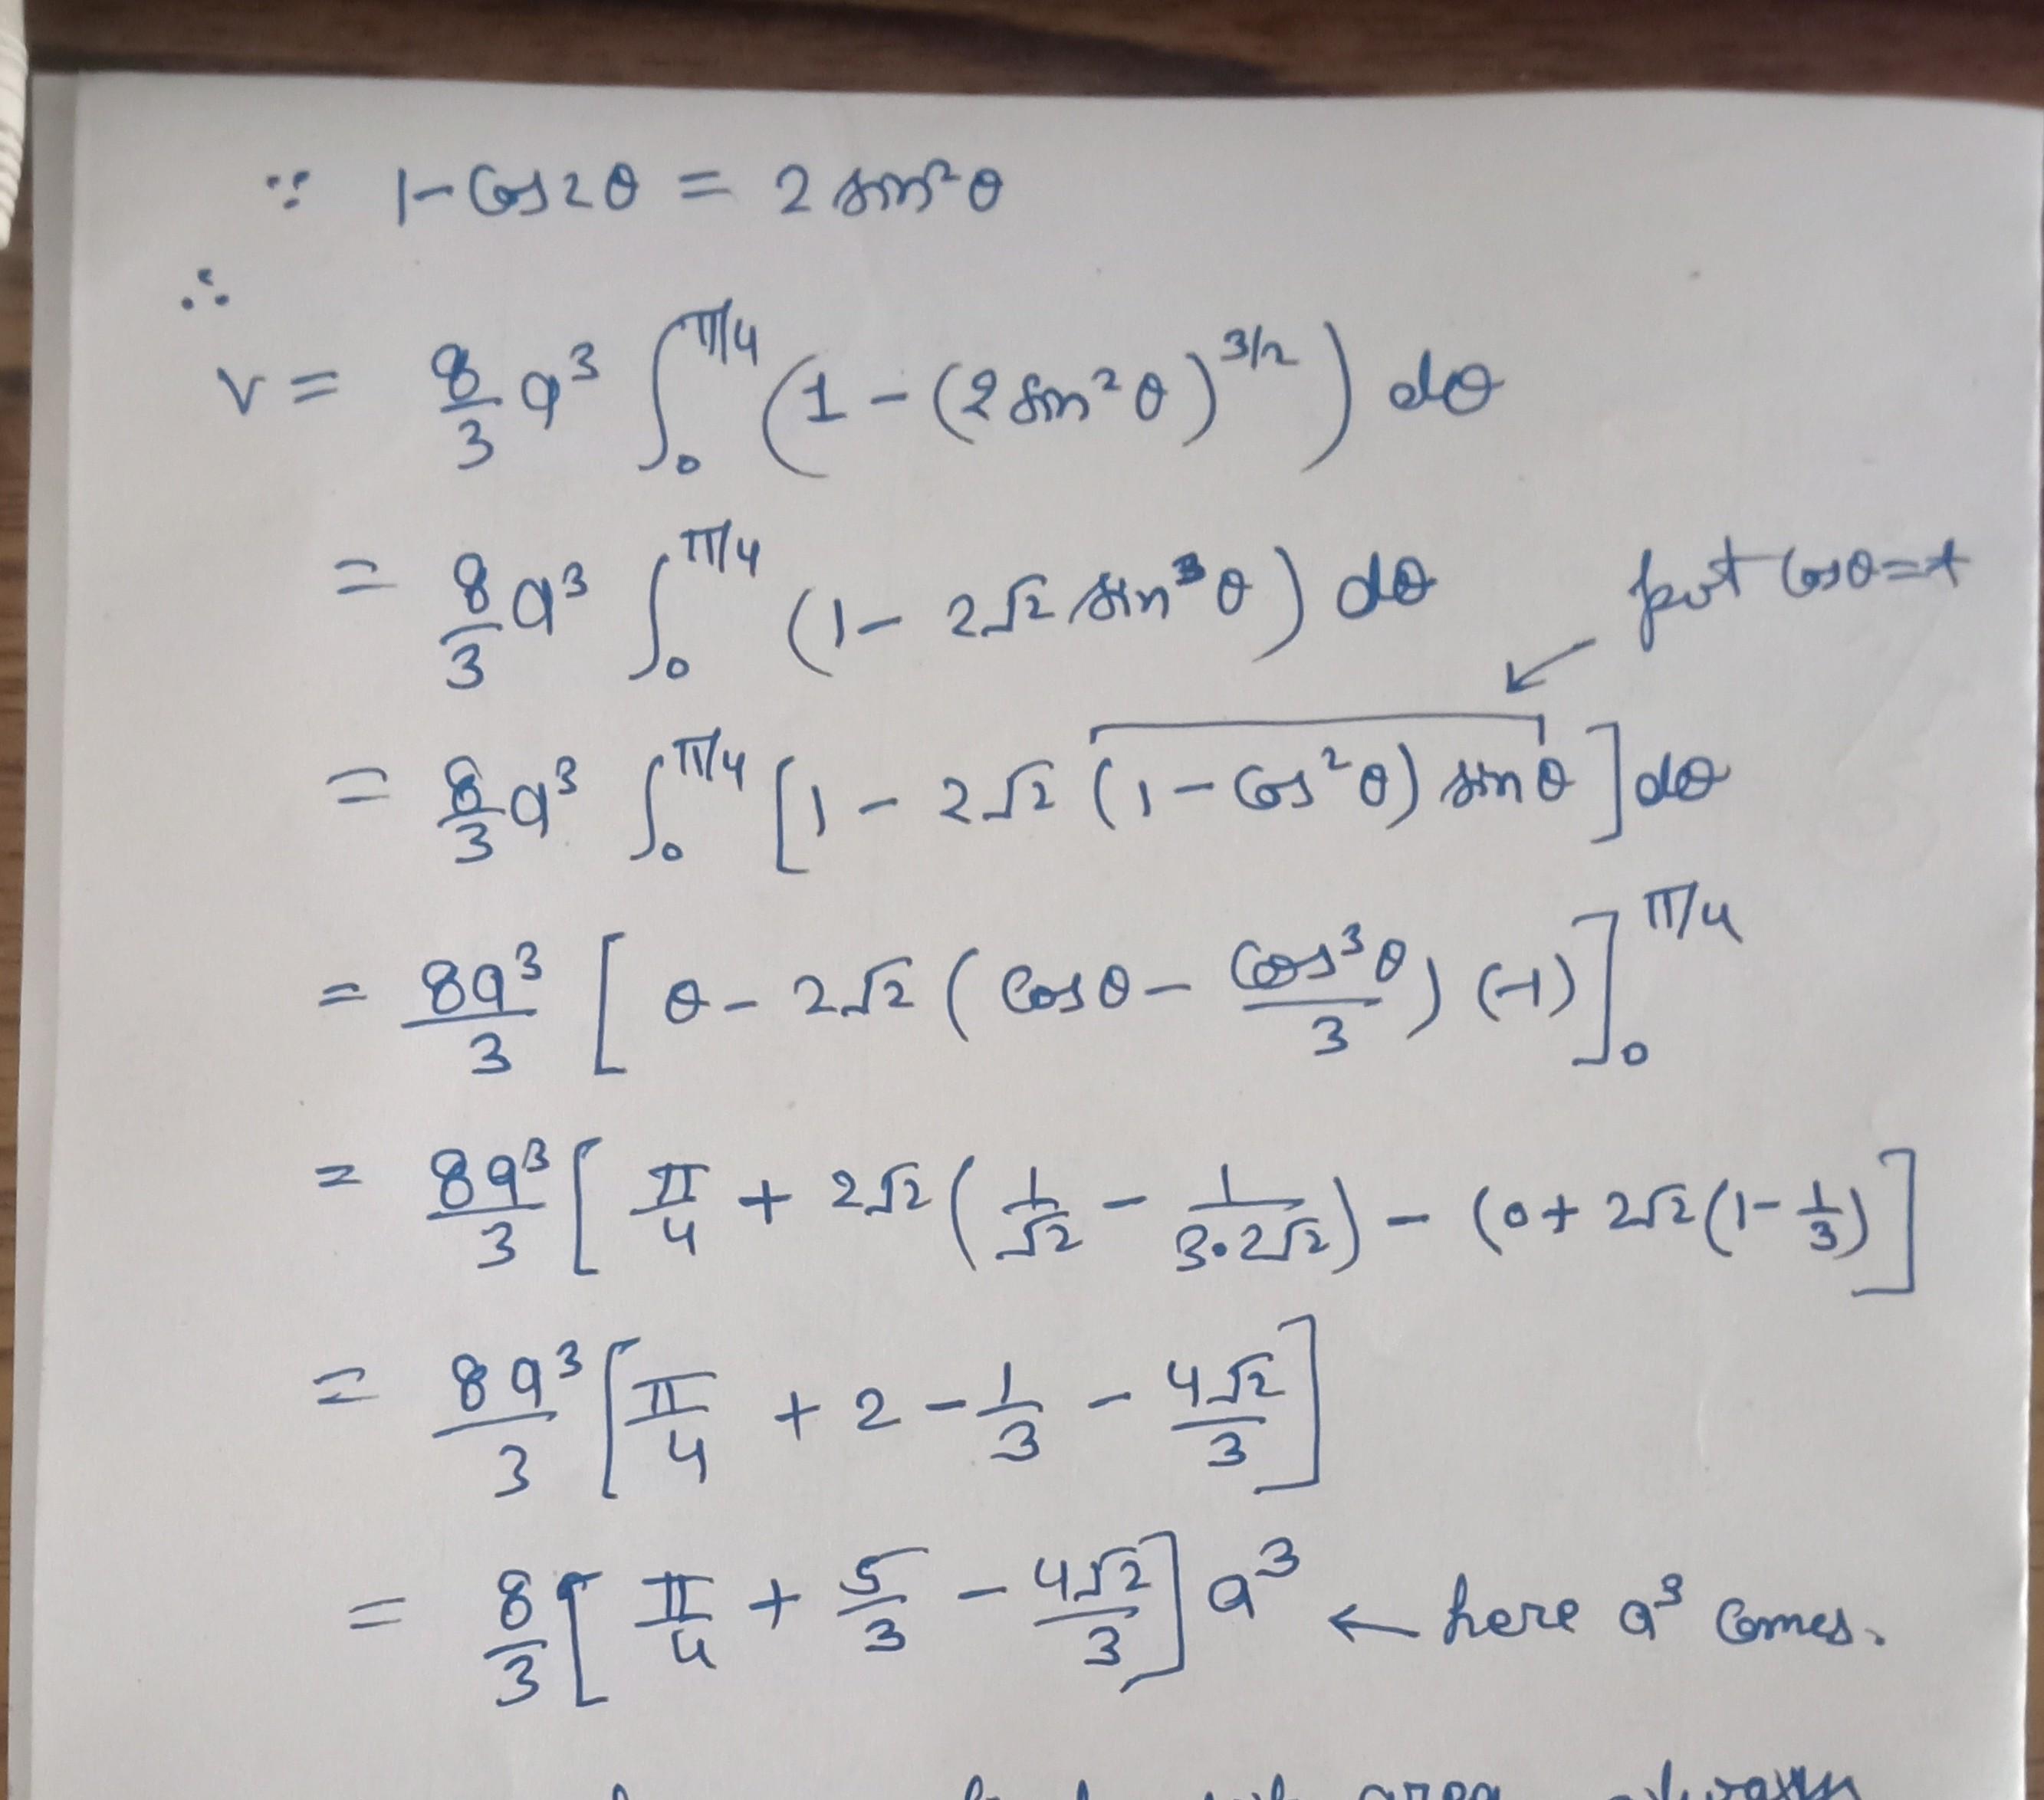 ∵ 1 - Cos2θ = 2 sin²θ
∴
V = 8/3 a³ ∫₀^π/4 (1 - (2 sin²θ)^3/2) dθ
= 8/3 a³ ∫₀^π/4 (1 - 2√2 sin³θ) dθ put Cosθ=t
= 8/3 a³ ∫₀^π/4 [1 - 2√2 (1 - Cos²θ) sinθ] dθ
= 8a³/3 [θ - 2√2 (Cosθ - Cos³θ/3) (-1)]₀^π/4
= 8a³/3 [π/4 + 2√2 (1/√2 - 1/3·2√2) - (0 + 2√2 (1 - 1/3)]
= 8a³/3 [π/4 + 2 - 1/3 - 4√2/3]
= 8/3 [π/4 + 5/3 - 4√2/3] a³ ← here a³ Comes.
area